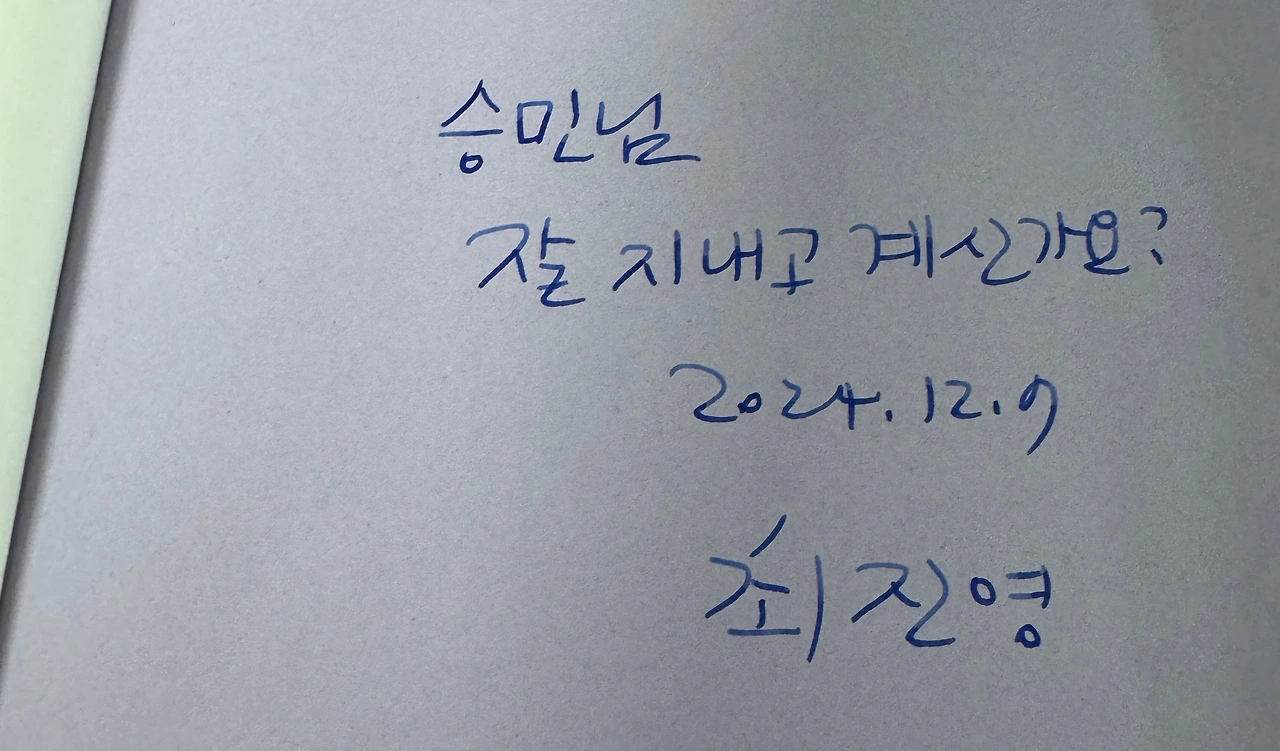 승민님
잘 지내고 계신가요?
2024.12.9
최진영